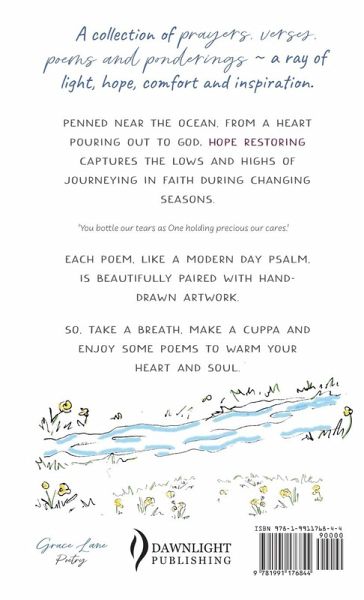 A collection of prayers, verses,
poems and ponderings ~ a ray of
light, hope, comfort and inspiration.
PENNED NEAR THE OCEAN, FROM A HEART
POURING OUT TO GOD, HOPE RESTORING
CAPTURES THE LOWS AND HIGHS OF
JOURNEYING IN FAITH DURING CHANGING
SEASONS.
'You bottle our tears as One holding precious our cares.'
EACH POEM, LIKE A MODERN DAY PSALM,
IS BEAUTIFULLY PAIRED WITH HAND-
DRAWN ARTWORK.
SO, TAKE A BREATH, MAKE A CUPPA AND
ENJOY SOME POEMS TO WARM YOUR
HEART AND SOUL.
Grace Lane
Poetry
DAWNLIGHT
PUBLISHING
ISBN 978-1-9911768-4-4
90000
9 781991 176844